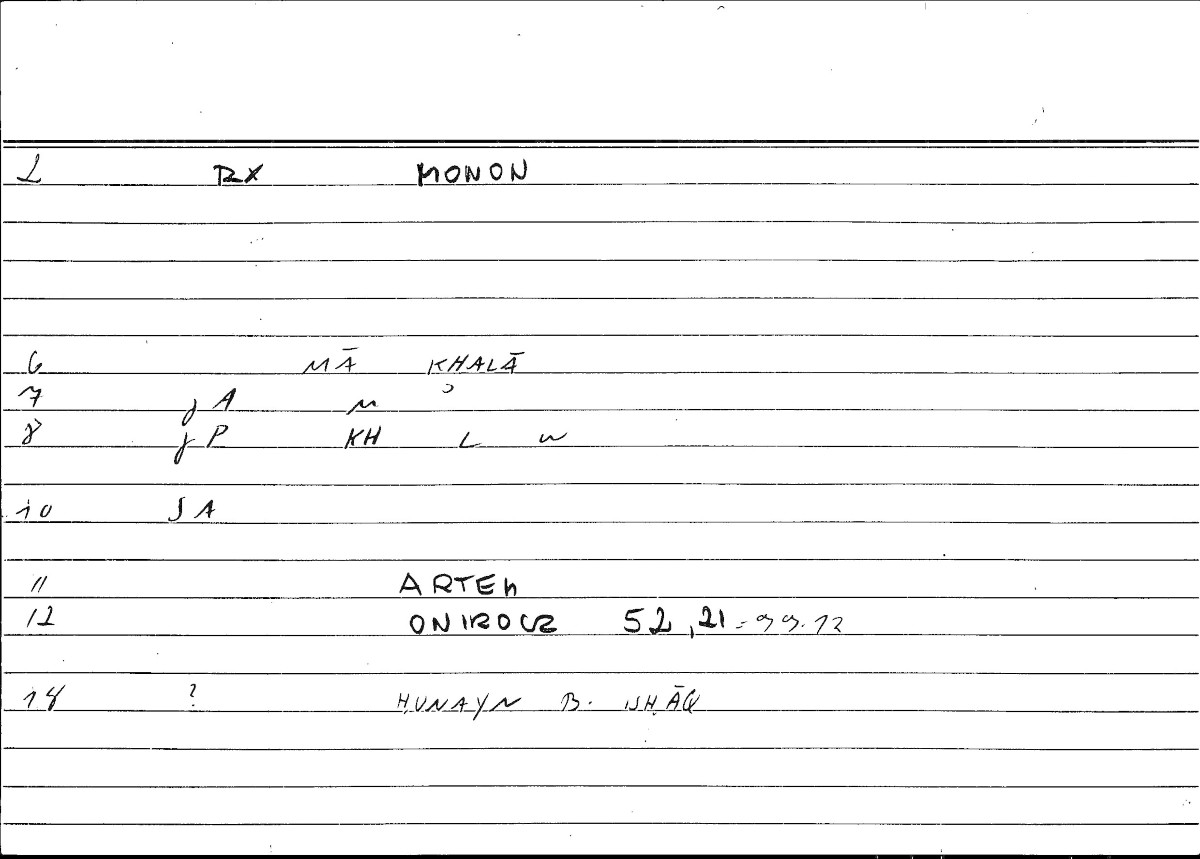 2 RX MONON
6 MĀ KHALĀ
7 jA M
8 jP KH L W
10 SA
11 ARTEM
12 ONIROCR 52,21 = 99.12
18 ? ḤUNAYN B. ISḤĀQ